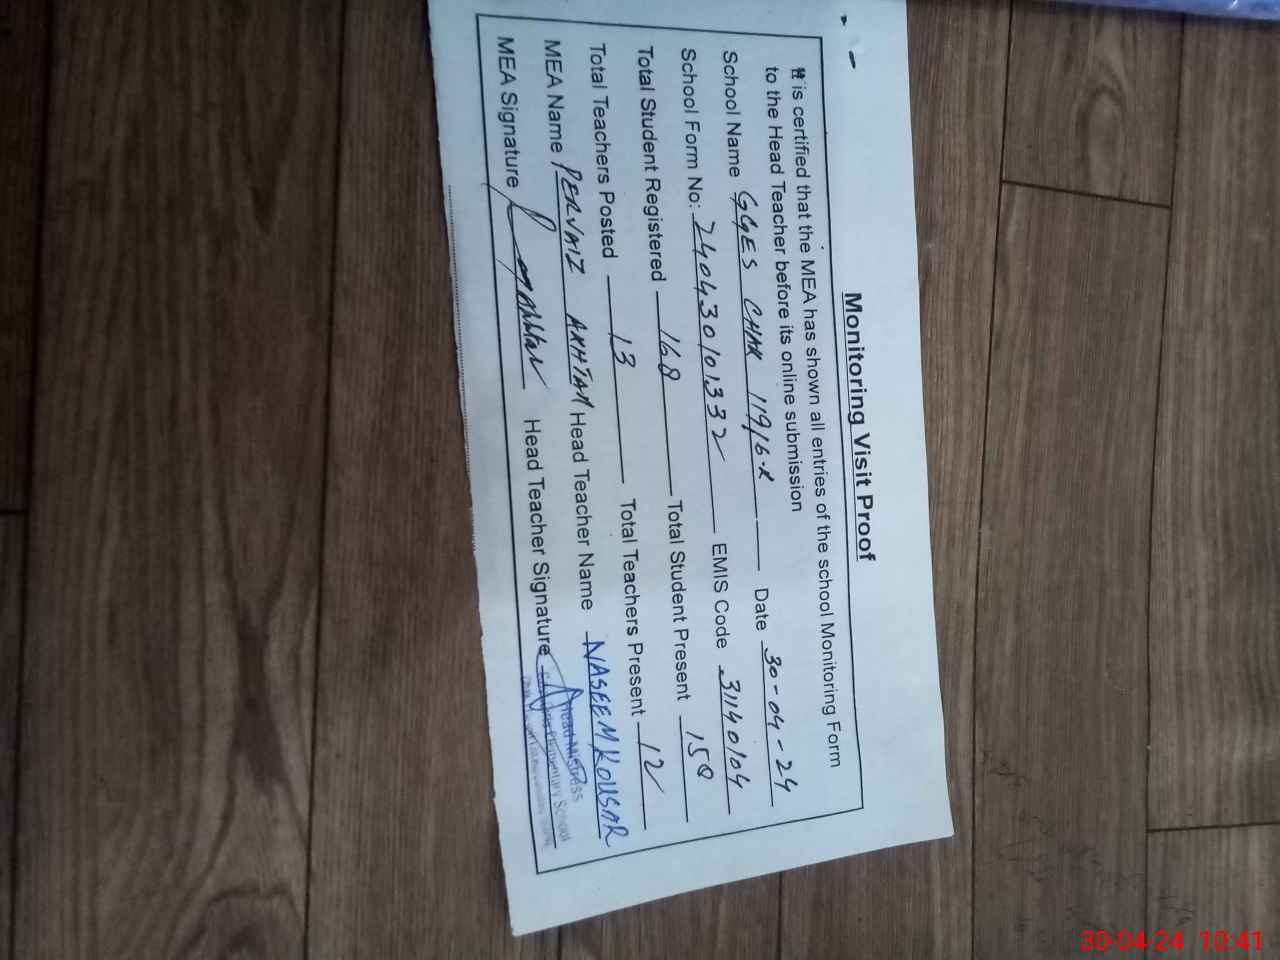 Monitoring Visit Proof
It is certified that the MEA has shown all entries of the school Monitoring Form
to the Head Teacher before its online submission
School Name GGES CHAK 119/6-R Date 30-04-24
School Form No: 240430101332 EMIS Code 31140104
Total Student Registered 168 Total Student Present 158
Total Teachers Posted 13 Total Teachers Present 12
MEA Name PERVAIZ AKHTAR Head Teacher Name NASEEM KOUSAR
MEA Signature Head Teacher Signature
Head Mistress
Elementary School
30-04-24 10:41